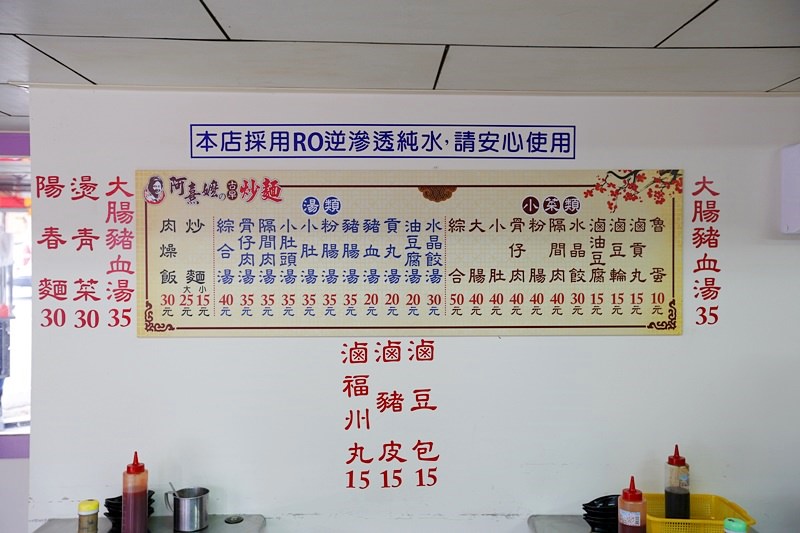 本店採用RO逆滲透純水,請安心使用
陽春麵30
燙青菜30
大腸豬血湯35
阿熹嬤の古早炒麵
肉燥飯 30元
炒麵 大25元 小15元
湯類
綜合湯 40元
骨仔肉湯 35元
隔間肉湯 35元
小肚頭湯 35元
小肚湯 35元
粉腸湯 35元
豬腸湯 35元
豬血湯 20元
貢丸湯 20元
油豆腐湯 20元
水晶餃湯 30元
小菜類
綜合 50元
大腸 40元
小肚 40元
骨仔肉 40元
粉腸 40元
隔間肉 40元
水晶餃 30元
滷油豆腐 15元
滷豆輪 15元
滷貢丸 15元
魯蛋 10元
大腸豬血湯35
滷福州丸15
滷豬皮15
滷豆包15